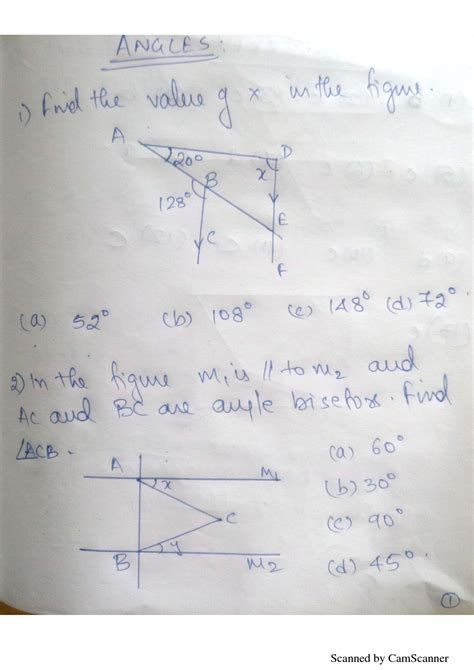 ANGLES :
1) Find the value of x in the figure.
A
20°
D
x
B
128°
E
C
F
(a) 52° (b) 108° (c) 148° (d) 72°
2) In the figure m₁ is // to m₂ and
AC and BC are angle bisefors. Find
∠ACB.
(a) 60°
A
x
m₁
(b) 30°
C
(c) 90°
B
y
m₂
(d) 45°
1
Scanned by CamScanner